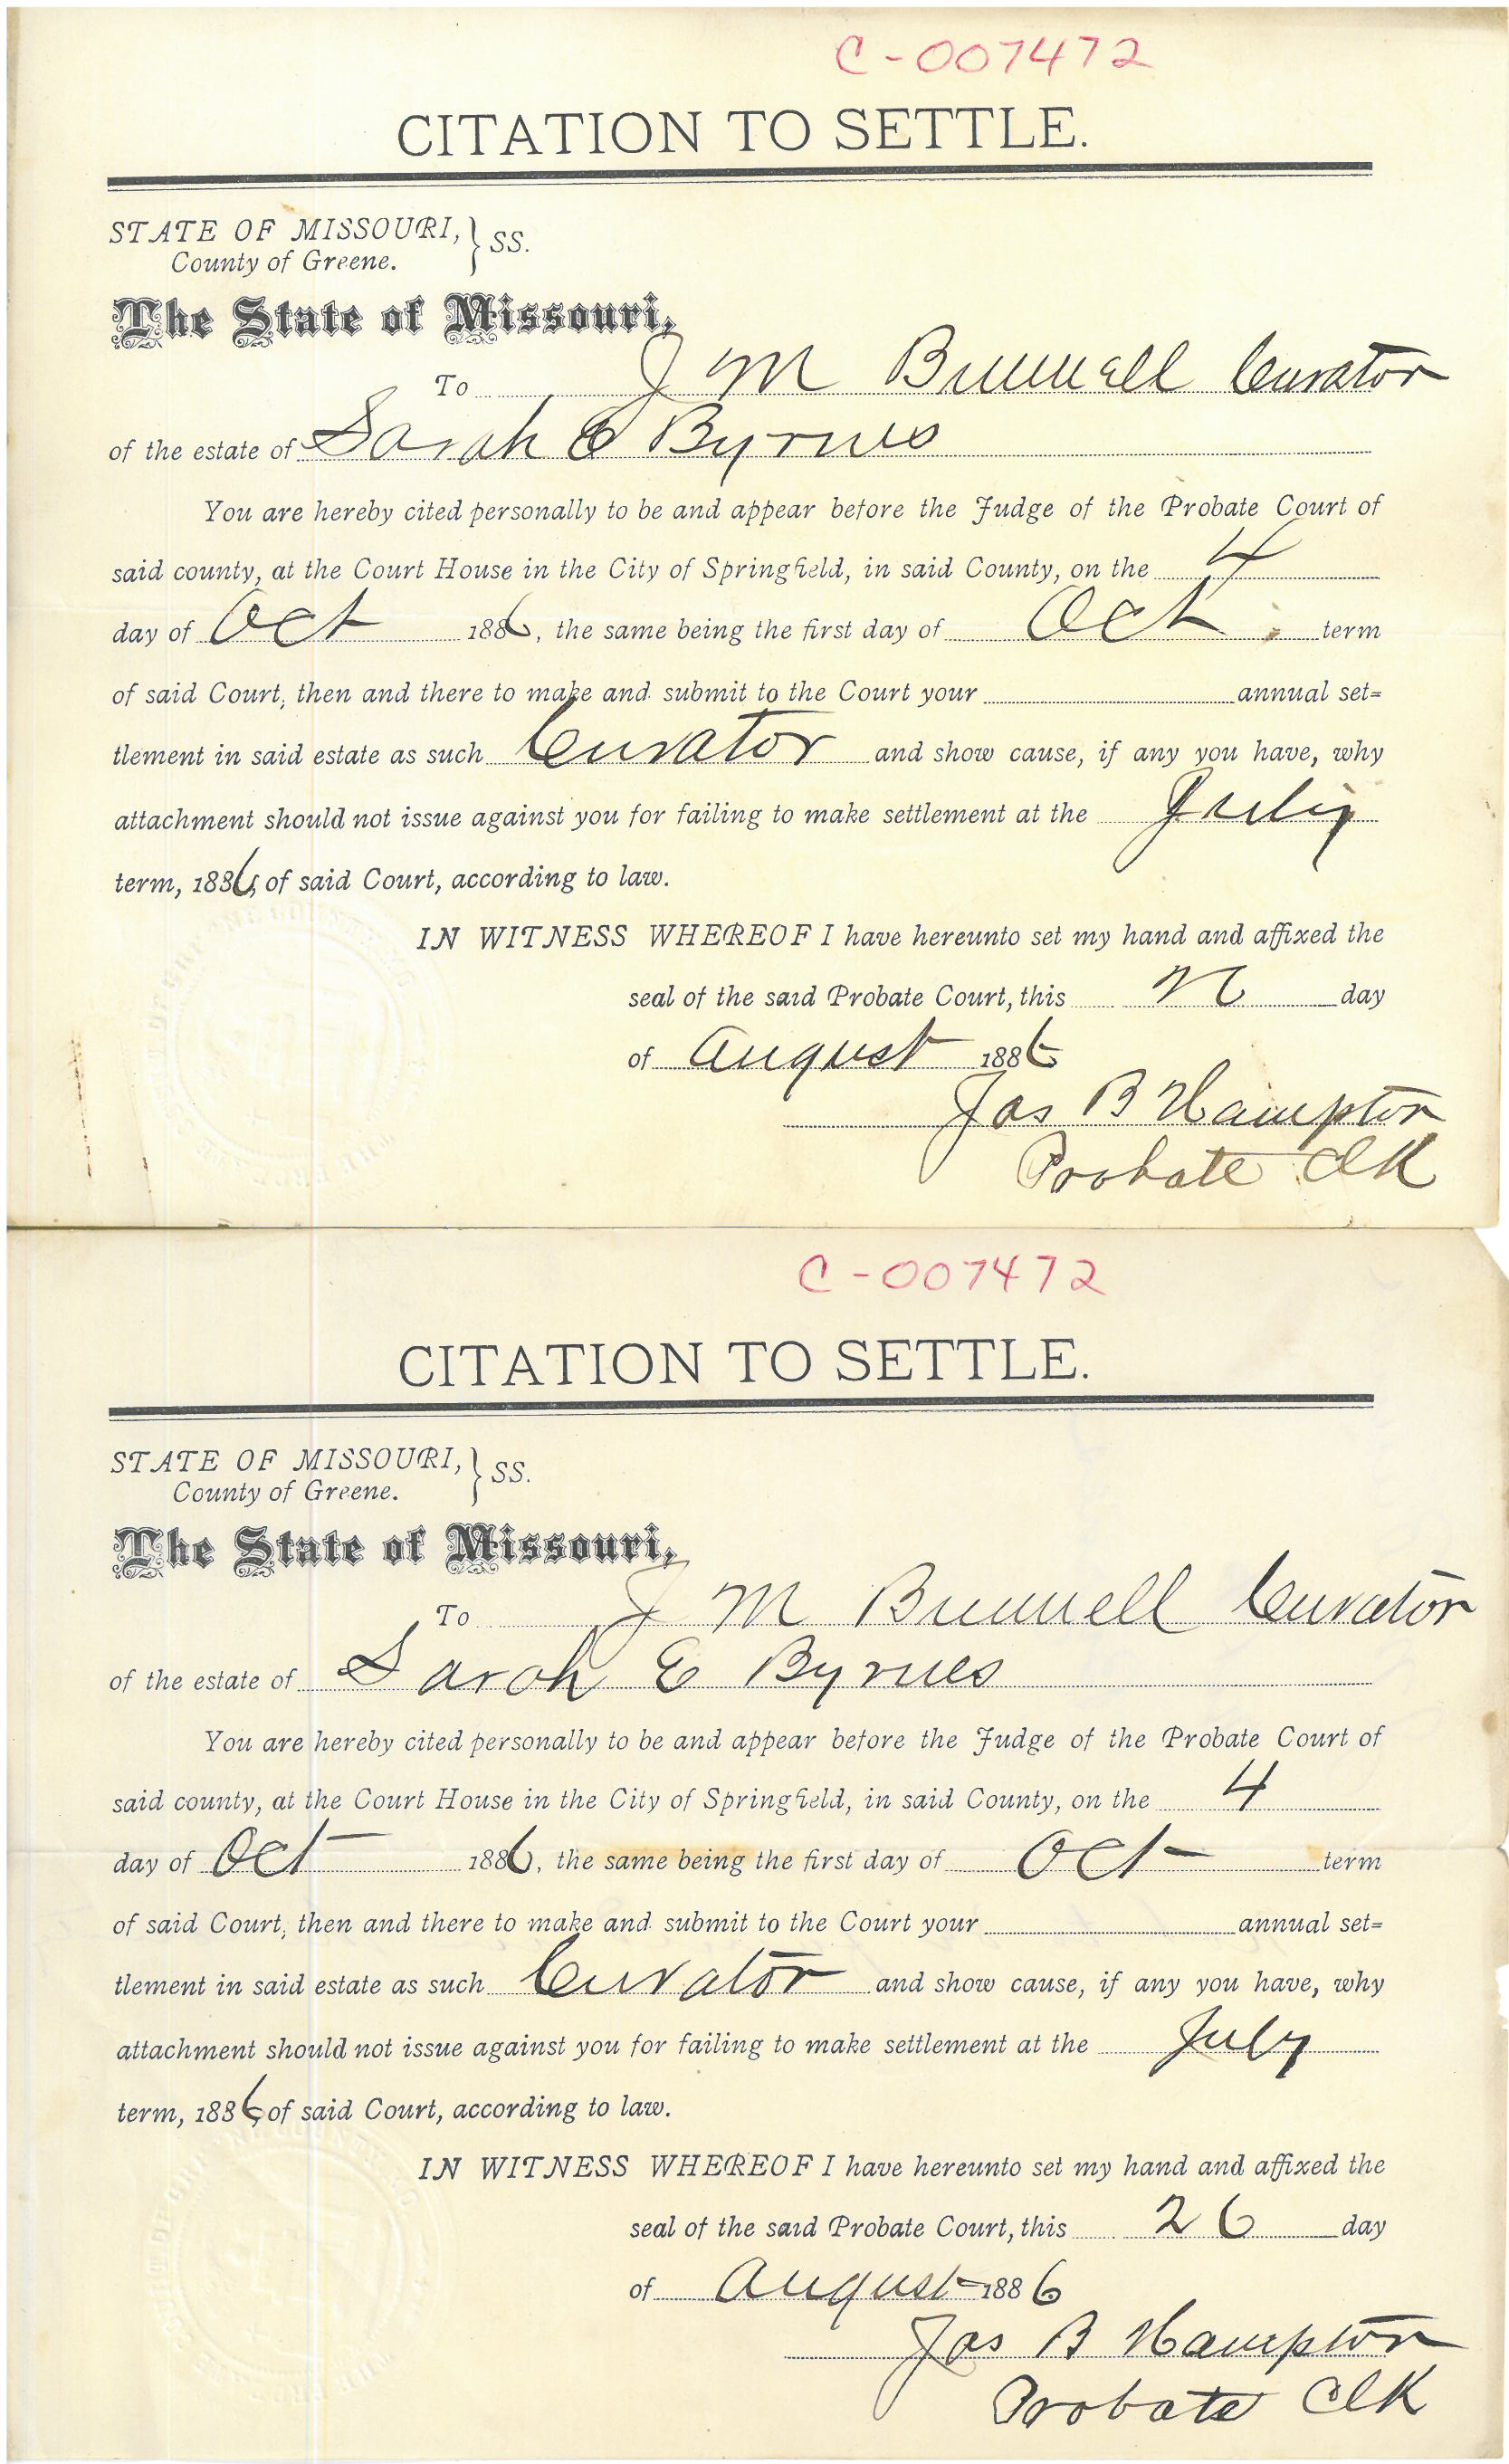 C-007472
CITATION TO SETTLE.
STATE OF MISSOURI, } SS.
County of Greene.
The State of Missouri,
To J M Brunnell Curator
of the estate of Sarah E Byrnes
You are hereby cited personally to be and appear before the Judge of the Probate Court of
said county, at the Court House in the City of Springfield, in said County, on the 4
day of Oct 1886, the same being the first day of Oct. term
of said Court, then and there to make and submit to the Court your annual set=
tlement in said estate as such Curator and show cause, if any you have, why
attachment should not issue against you for failing to make settlement at the July
term, 1886, of said Court, according to law.
IN WITNESS WHEREOF I have hereunto set my hand and affixed the
seal of the said Probate Court, this day
of August 1886
Jas B Hampton
Probate Clk
C-007472
CITATION TO SETTLE.
STATE OF MISSOURI, } SS.
County of Greene.
The State of Missouri,
To J M Brunnell Curator
of the estate of Sarah E Byrnes
You are hereby cited personally to be and appear before the Judge of the Probate Court of
said county, at the Court House in the City of Springfield, in said County, on the 4
day of Oct 1886, the same being the first day of Oct term
of said Court, then and there to make and submit to the Court your annual set=
tlement in said estate as such Curator and show cause, if any you have, why
attachment should not issue against you for failing to make settlement at the July
term, 1886, of said Court, according to law.
IN WITNESS WHEREOF I have hereunto set my hand and affixed the
seal of the said Probate Court, this 26 day
of August 1886
Jas B Hampton
Probate Clk